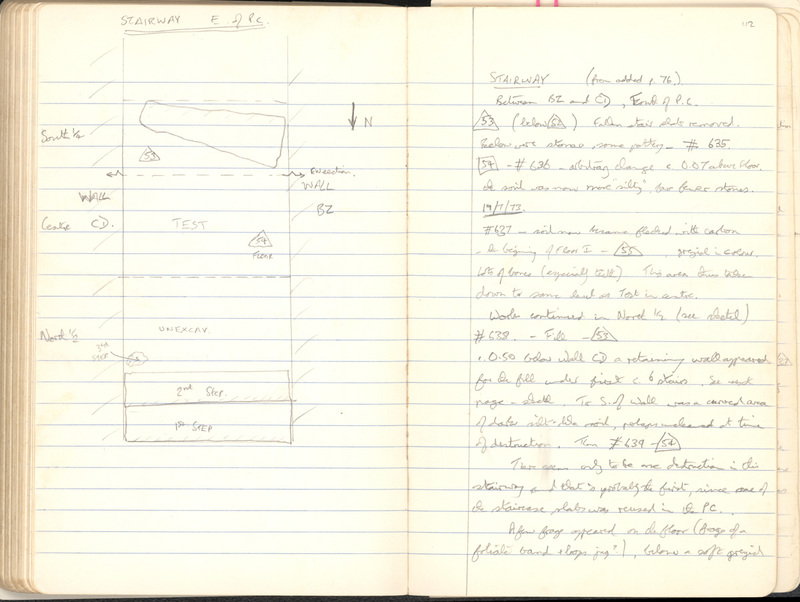 STAIRWAY E of P.C.
N
South ½
53
Evection
WALL
WALL
BZ
Centre CD.
TEST
54
FLOOR
North ½
UNEXCAV.
3rd STEP
2nd STEP.
1st STEP
112
STAIRWAY (from added p. 76.)
Between BZ and CD, East of P.C.
53 (below 51) Fallen stair slabs removed.
Below were stones, some pottery - # 635.
54 - # 636 - arbitrary change c. 0.07 above floor.
de soil was now more "silty", far fewer stones.
19/7/73.
#637 - soil now became flecked with carbon
- de beginning of Floor I - 55, greyish in colour.
Lots of bones (especially). This area thus taken
down to same level as Test in centre.
Work continued in North ½ (see sketch)
#638. - Fill - 53
c. 0.50 below Wall CD a retaining wall appeared
for the fill under first c. 6 stairs. See next
page - sketch. To S. of wall was a curved area
of darker silt-like soil, perhaps uncleaned at time
of destruction. Then #639 - 54
There seems only to be one destruction in this
stairway & that's probably the first, since one of
de staircase slabs was reused in the P.C.
A few frags appeared on de floor (frags of a
foliate band & loops jug?), below a soft greyish